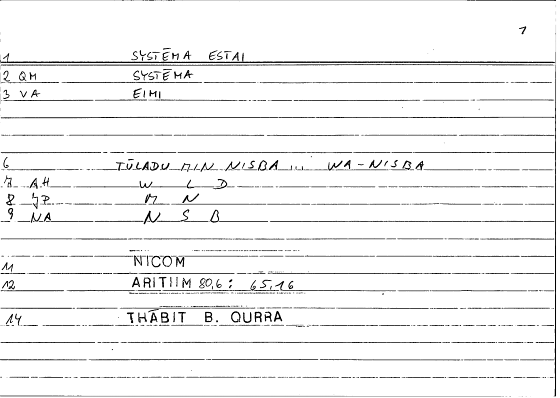 1
1 SYSTĒMA ESTAI
2 QM SYSTĒMA
3 VA EIMI
6 TŪLADU MIN NISBA ... WA-NISBA
7 AH W L D
8 JP M N
9 NA N S B
11 NICOM
12 ARITIIM 80,6 : 65,16
14 THĀBIT B. QURRA